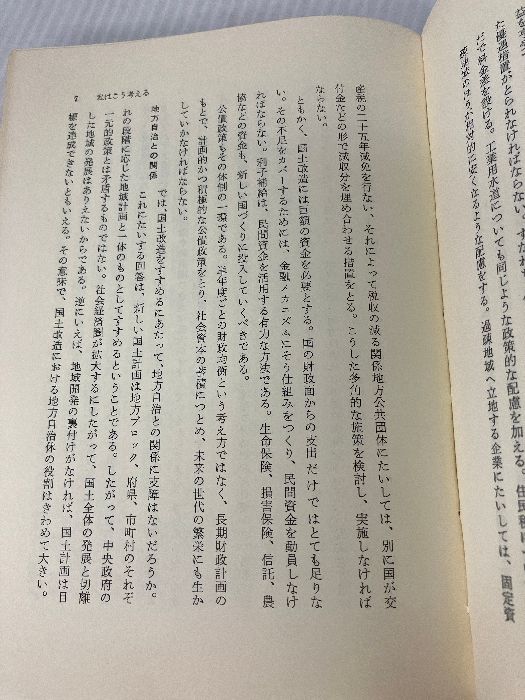 た優遇措置がとられなければならない。
だいて料金差を設ける。工業用水道についても同じような政策的な配慮を加える。住民税に
な配慮をする。過疎地域へ立地する企業にたいしては、固定資
産税の二十五年減免を行ない、それによって税収の減る関係地方公共団体にたいしては、別に国が交
付金などの形で減収分を埋め合わせる措置をとる。こうした多角的な施策を検討し、実施しなければ
ならない。
ともかく、国土改造には巨額の資金を必要とする。国の財政画からの支出だけではとても足りな
い。その不足をカバーするためには、金融メカニズムにそう仕組みをつくり、民間資金を動員しなけ
ればならない。利子補給は、民間資金を活用する有力な方法である。生命保険、損害保険、信託、農
協などの資金も、新しい国づくりに投入していくべきである。
公債政策もその体制の一環である。単年度ごとの財政均衡という考え方ではなく、長期財政計画の
もとで、計画的かつ積極的な公債政策をとり、社会資本の蓄積につとめ、未来の世代の繁栄にも生か
していかなければならない。
地方自治との関係
では、国土改造をすすめるにあたって、地方自治との関係に支障はないだろうか。
これにたいする回答は、新しい国土計画は地方ブロック、府県、市町村のそれぞ
れの段階に応じた地域計画と一体のものとしてすすめるということである。したがって、中央政府の
一元的政策とは矛盾するものではない。社会経済圏が拡大するにしたがって、国土全体の発展と切離
した地域の発展はありえないからである。逆にいえば、地域開発の裏付けがなければ、国土計画は目
標を達成できないともいえる。その意味で、国土改造における地方自治体の役割はきわめて大きい。
7 私はこう考える